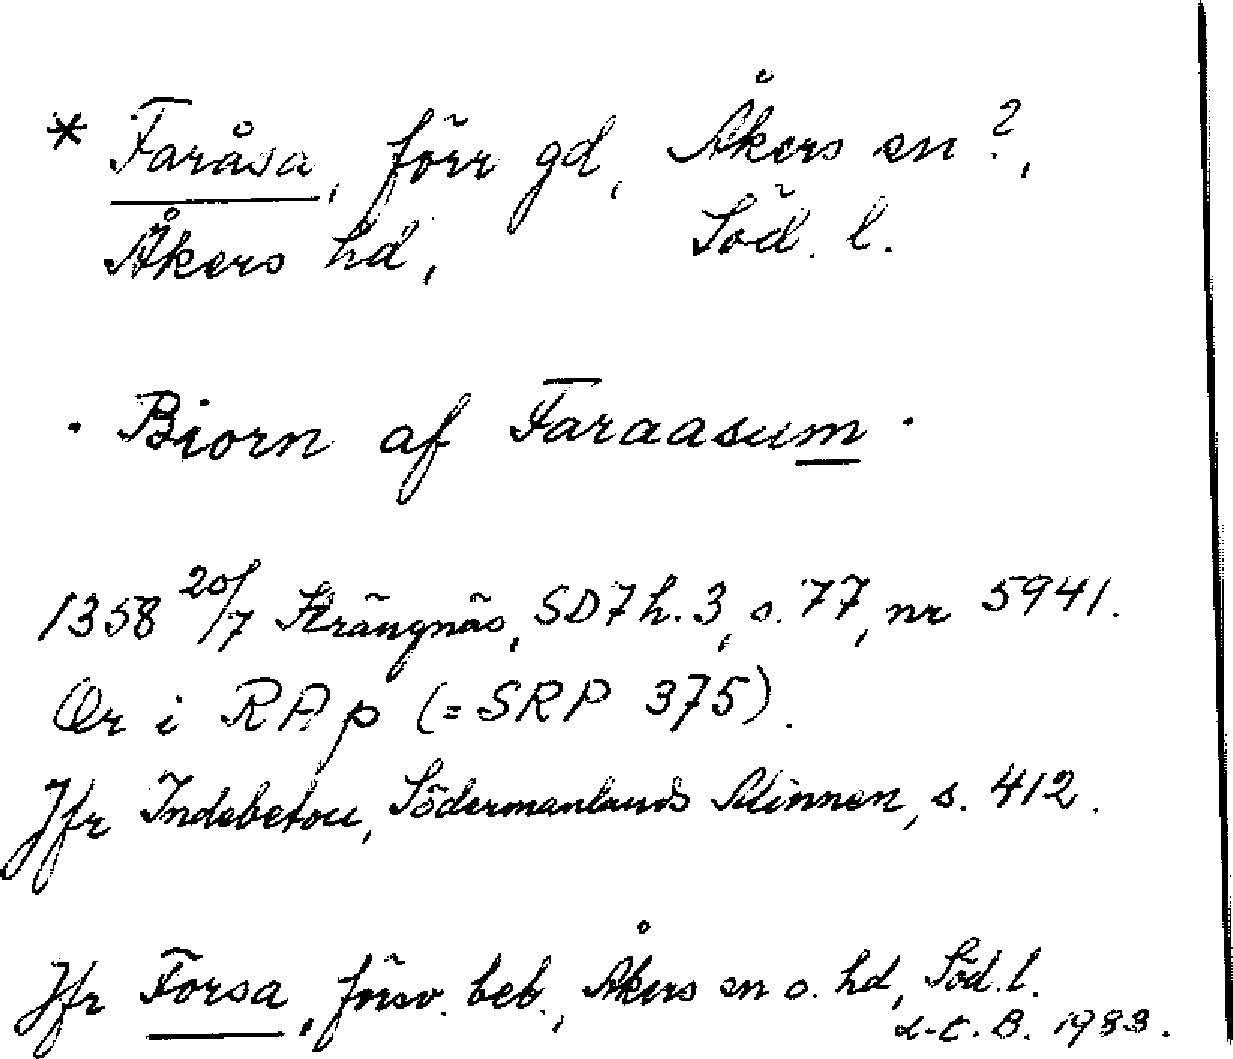 * Faråsa, förr gd, Åkers sn?,
Åkers hd, Söd. l.
· Biorn af Faraasum ·
1358 20/7 Strängnäs, SD 7 h. 3, s. 77, nr 5941.
Or i RAp (= SRP 375).
Jfr Indebetou, Södermanlands Minnen, s. 412.
Jfr Forsa, försv. beb., Åkers sn o. hd, Söd. l.
L-C. B. 1983.